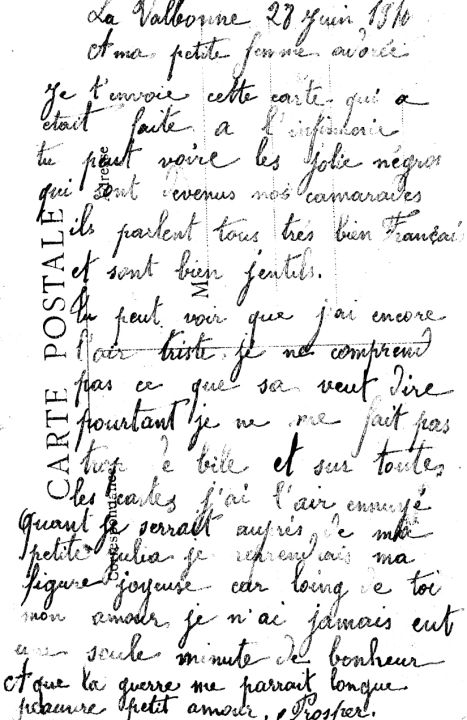 La Valbonne 28 Juin 1916
A ma petite femme adorée
Je t'envoie cette carte qui a
était faite a l'infirmerie
tu peut voire les jolie négros
qui sont devenus nos camarades
ils parlent tous trés bien Français
et sont bien jentils.
Tu peut voir que j'ai encore
l'air triste je ne comprend
pas ce que sa veut dire
pourtant je ne me fait pas
trop de bile et sur toutes
les cartes j'ai l'air ennuyé
quant je serrait auprés de ma
petite Julia je reprendrais ma
figure joyeuse car loing de toi
mon amour je n'ai jamais eut
une seule minute de bonheur
A que la guerre me parrait longue
peauvre petit amour. Prosper.
CARTE POSTALE
Correspondance
Adresse
M